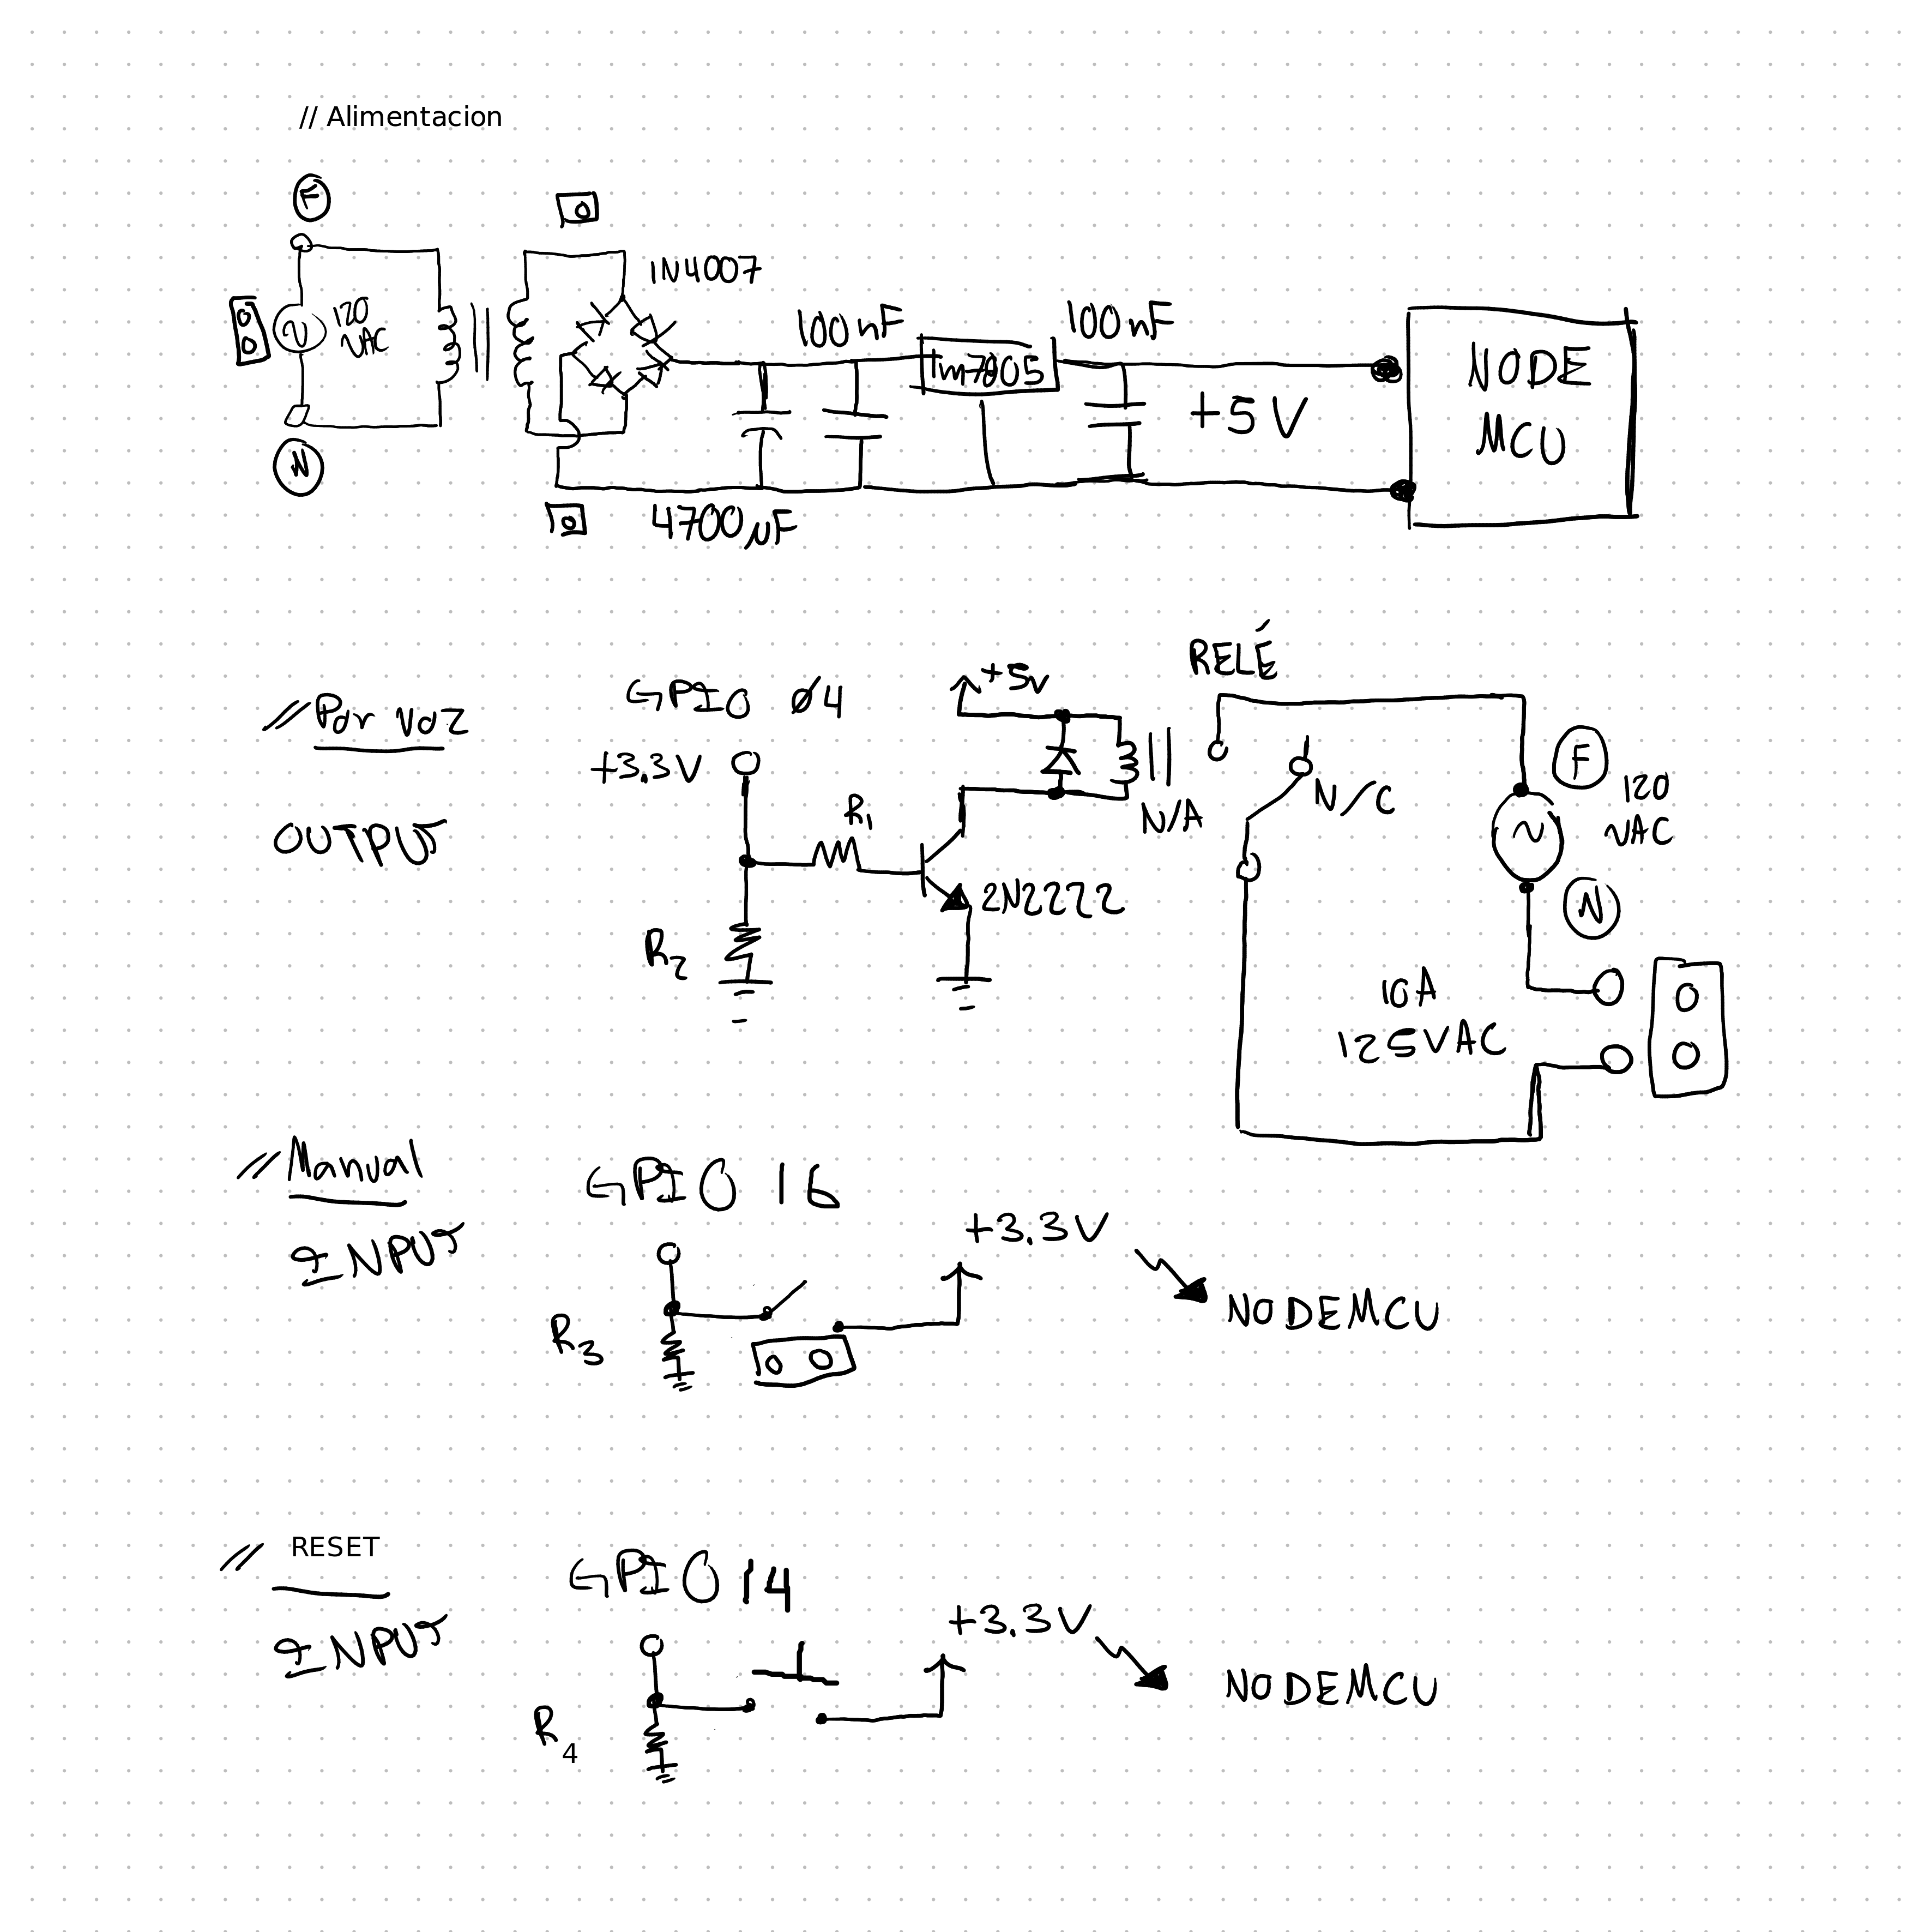 // Alimentacion
F
120
VAC
N
1N4007
100nF
lm7805
100nF
+5V
4700µF
NODE
MCU
// Por Voz
OUTPUT
GPIO Ø4
+3.3V
R1
R2
2N2222
+5v
RELÉ
N/A
N/C
F
120
VAC
N
10A
125VAC
// Manual
INPUT
GPIO 16
R3
+3.3V
NODEMCU
// RESET
INPUT
GPIO 14
R4
+3.3V
NODEMCU